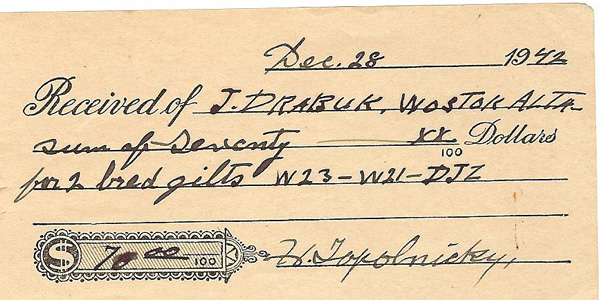 Dec. 28 1942
Received of J. DRABUK, WOSTOK ALTA
sum of Seventy xx/100 Dollars
for 2 bred gilts W23-W21-DJZ
$ 70 00/100 W. Topolnicky,